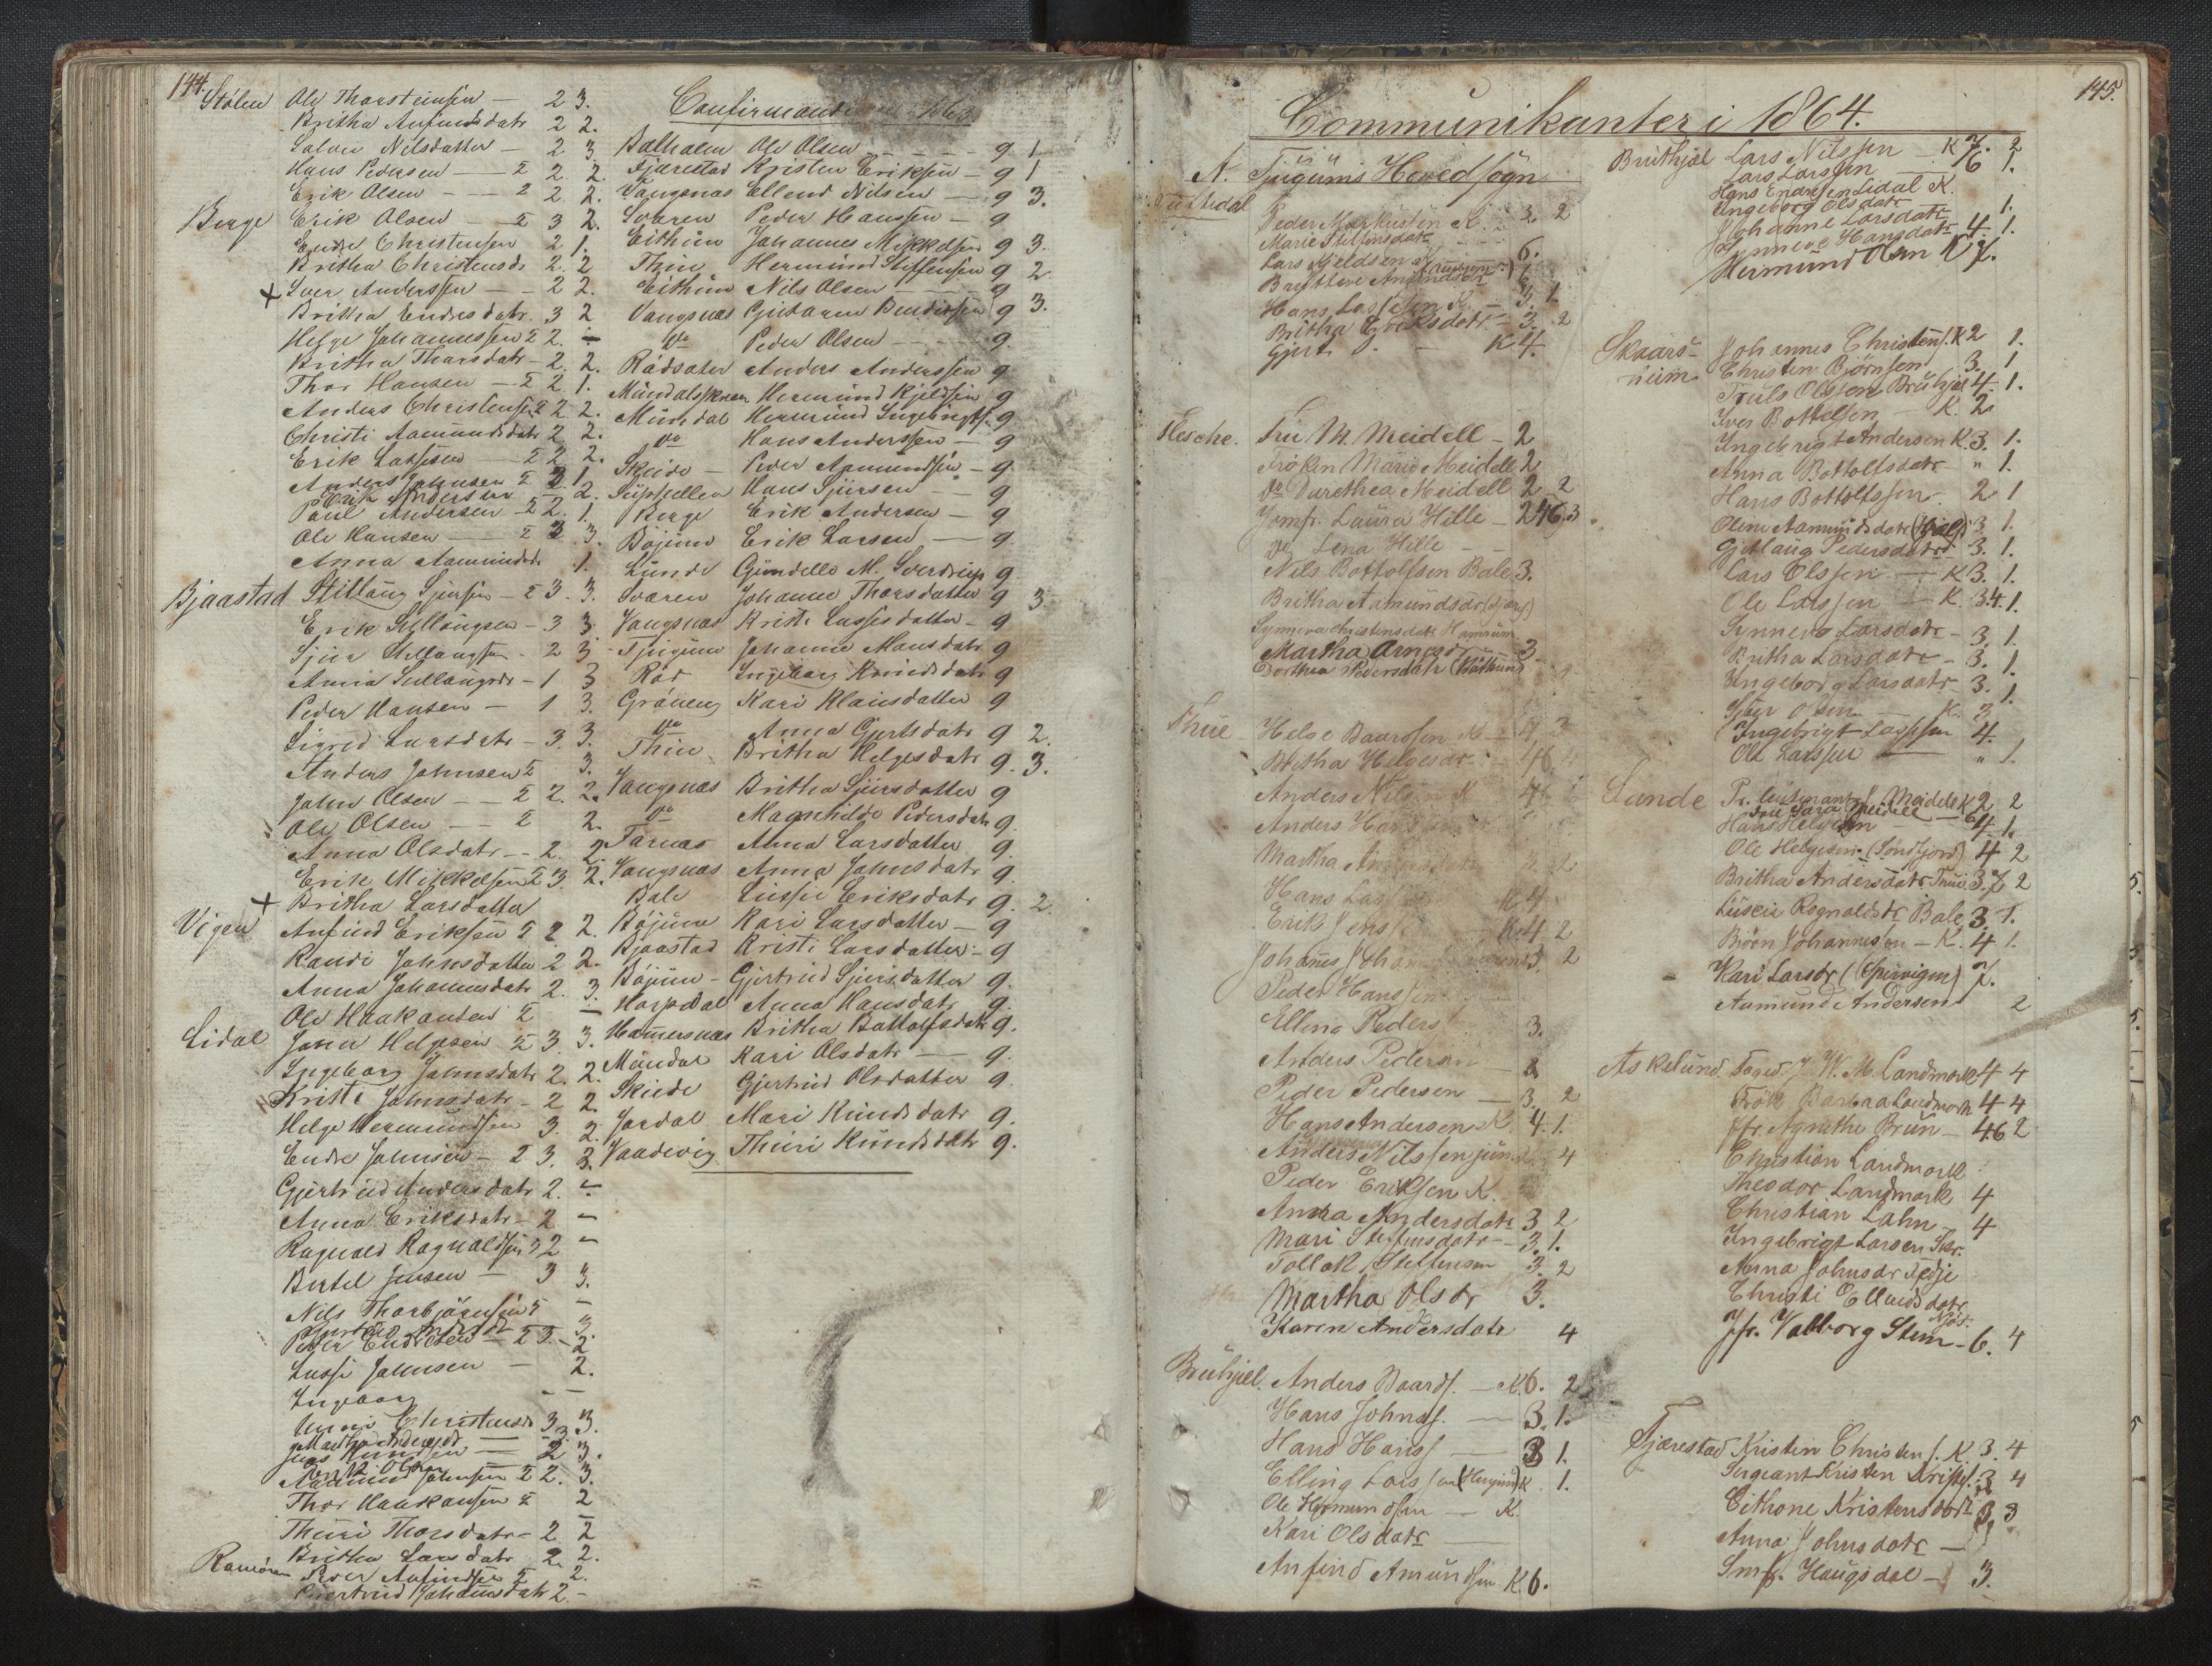 144.
Stølen Ole Thorsteinsen — 2 3.
Britha Anfindsdatr 2 2.
Salvei Nilsdatter — 2 3
Hans Pedersen — 2 2 2.
Erik Olsen — 2 2 2.
Berge Erik Olsen — 2 3 2.
Endre Christensen 2 1.
Britha Christensdr 2. 2
+ Iver Anderssen — 2 2.
Britha Endresdatr. 3 2
Helge Johannessen 2 2. –
Britha Thorsdatr — 2. 2.
Thor Hansen — 2 2 1.
Anders Christensen 2 2 2.
Christi Aamundsdatr 2 2.
Erik Lassesen — 2 2 2.
Anders Johnsen 2 2. 1
Erik Andersen 2.
Poul Andersen — 2 2. 1.
Ole Hansen — 2 2 3.
Anna Aamundsdr 1.
Bjaastad Stillaug Sjursen — 2 3. 3.
Erik Syllaugsen — 3 3.
Sjur Stillaugsen — 2 3
Anna Sullaugsdr — 1 3
Peder Hansen — 1 3.
Sigred Larsdatr — 3. 3.
Anders Johnsen 2 3.
John Olsen — 2 2. 2.
Ole Olsen — 2 2.
Anna Olsdatr — 2. 2.
Erik Mikkelsen 2 3. 2.
+ Britha Larsdatter
Vigen Anfind Eriksen 2 2 2.
Randi Johnsdatter 2 2.
Anna Johannesdatr 2. 3.
Ole Haakansen 2 –
Lidal John Helgesen 2 3. 3.
Ingeborg Johnsdatr 2. 2.
Kristi Johnsdatr — 2 2.
Helge Hermundsen 3. 2.
Endre Johnsen — 2 3. 3.
Gjertrud Andersdatr 2. –
Anna Eriksdatr — 2 –
Ragnald Ragnaldsen 3 2 –
Bertel Jensen — 3 3.
Nils Thorbjørnsen 3 –
Peder Endresen — 2 3. – 2.
Lasse Johnsen — 2.
Ingeborg — –
Anna Christensdr 3 3.
Martha Andersdr — 3.
Jens Knudsen — 2 3.
Aamund Johnsen 2 2. 3.
Thor Haakansen 2 2
Thuri Thorsdatr — 2 2
Britha Larsdatr 2. 2.
Ramøren Iver Anfindsen 2 2.
Gjertrud Johannsdatr 2. –
Confirmander 1863.
Balholm Ole Olsen — 9. 1
Fjærestad Kristen Eriksen — 9 1
Vangsnæs Ellend Nilsen — 9 3.
Sværen Peder Hanssen — 9
Eithun Johannes Mikkelsen 9 3.
Thue Hermund Steffensen 9 2
Eithun Nils Olsen — 9
Vangsnæs Guttorm Bendixsen 9 3.
do Peder Olsen — 9.
Rødsæter Anders Anderssen 9
Mundalsskreen Hermund Kjeldsen 9
Mundal Hermund Ingebrigts. 9
do Hans Anderssen — 9
Skeide — Peder Aamundsen — 9
Suphellen Hans Sjursen — 9
Berge Erik Andersen — 9
Bøjum Erik Larsen — 9
Lunde Gundelle M. Sverdrup 9
Sværen Johanne Thorsdatter 9 3
Vangsnæs Kristi Lassesdatter — 9
Tjugum Johanne Hansdatr 9
Rør Ingeborg Knudsdatr 9
Grøneng Kari Klausdatter 9
do Anna Gjertsdatr 9 2.
Thue Britha Helgesdatr 9. 3.
Vangsnæs Britha Sjursdatter 9
do Magnhilde Pedersdatr 9.
Farnæs Anna Larsdatter 9.
Vangsnæs Anna Johnsdatr 9.
Bale Lussie Eriksdatr 9. 2.
Bøjum Kari Larsdatter — 9
Bjaastad Kristi Larsdatter — 9
Bøjum — Gjertrud Sjursdatter 9.
Horpedal Anna Hansdatr 9.
Hamersnæs Britha Battolfsdatr 9.
Mundal Kari Olsdatr — 9.
Skeide Gjertrud Olsdatter 9.
Jordal Mari Knudsdatr 9.
Vaadevig Thuri Knudsdatr 9.
145.
Communikanter i 1864.
A. Tjugums Hovedsogn
Peder Markussen K. 3 2
Marie Steffensdatr
Lars Kjeldsen 6.
Hans Lassesen K. — 3. 1.
Britha Eriksdatr — 3. 2
Gjert — K 4.
Hesche. Fru M. Meidell — 2
Frøken Marie Meidell 2
do Dorethea Meidell 2 2
Jomfr. Laura Hille — 2 4 6. 3
do Lena Hille —
Nils Bottolfsen Bale 3.
Britha Aamundsdr
Synneva Christensdatr Hamrum
Martha Arnesdr 3
Dorthea Pedersdatr
Thue Helge Baardsen K — 4 3
Britha Helgesdr 4 6
Anders Nilsen K 4
Anders Hans
Martha 2
Hans Lass K 4
Erik Jens K. 4 2
Johanes Joha 2
Peder Hanssen
Elling Peders 3.
Anders Pedersen
Peder Pedersen — 3. 2
Hans Andersen K. 4. 1.
Anders Nilssen jun. 4
Peder Eriksen K.
Anna Andersdatr 3 2
Mari Steffensdatr — 3. 1.
Tollak Steffensen 3. 2
Martha Olsdr 3.
Karen Andersdatr 4
Bruhjell. Anders Baards. — K 6. 2
Hans Johns. — 3. 1.
Hans Hans. — 3 1.
Elling Larssen K. 1.
Ole Hermundsen — K.
Kari Olsdatr —
Anfind Amundsen K. 6.
Bruhjel Lars Nilssen — K 7. 2
Lars Larssen — 6 1.
Hans Endresen Lidal K.
Ingeborg Olsdatr 1.
Johanne Larsdatr
Synneve Hansdatr 4. 1.
Hermund Olsen K 7.
Skaarsheim Johannes Christens. K 2 1.
Christen Bjørnsen 3. 1
Truls Olssen Bruhjel 4. 1.
Iver Bottolfsen — K. 2
Ingebrigt Andersen K. 3. 1.
Anna Bottolfsdatr — " 1.
Hans Bottolfssen — 2 1
Oline Aamundsdatr 3 1.
Gjetlaug Pedersdatr 3. 1.
Lars Olssen — K. 3. 1.
Ole Larssen — K. 3.4. 1.
Synneva Larsdatr — 3. 1.
Britha Larsdatr — 3. 1.
Ingeborg Larsdatr 3. 1.
Sjur Olsen — K. 3
Ingebrigt Lassesen 4.
Ole Larssen — " 1.
Lunde Pr. lieutenant J. Meidell K 2 2
Hans Helgesen — 4 1.
Ole Helgesen (Søndfjord) 4 2
Britha Andersdatr Thue 3. 7 2
Lussie Ragnaldsdr Bale 3. 1.
Bjørn Johannessen — K. 4 1.
Kari Larsdr (Spervigen) 7.
Aamund Andersen 2
Askelund. Foged J. W. M. Landmark 4 4
Frøk. Barbra Landmark 4 4
Jfr. Agnethe Brun — 4 6 2
Christian Landmark
Theodor Landmark 4
Christian Lahn — 4
Ingebrigt Larsen Skr.
Anna Johnsdr Tedje
Christi Ellendsdatr
Njøs.
Jfr. Valborg Stem — 6. 4
Fjærestad Kristen Christens. K. 3. 4
Sergeant Kristen Kristens. 3 4
Eithone Kristensdatr 3 3
Anna Johnsdatr —
Smf. Haugsdal — 3.